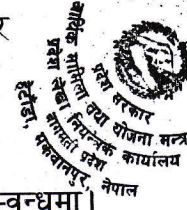 प्रदेश सरकार
आर्थिक मामिला तथा योजना मन्त्रा
प्रदेश लेखा नियन्त्रक कार्यालय
बागमती प्रदेश
हेटौंडा, मकवानपुर, नेपाल
म्वन्धमा।